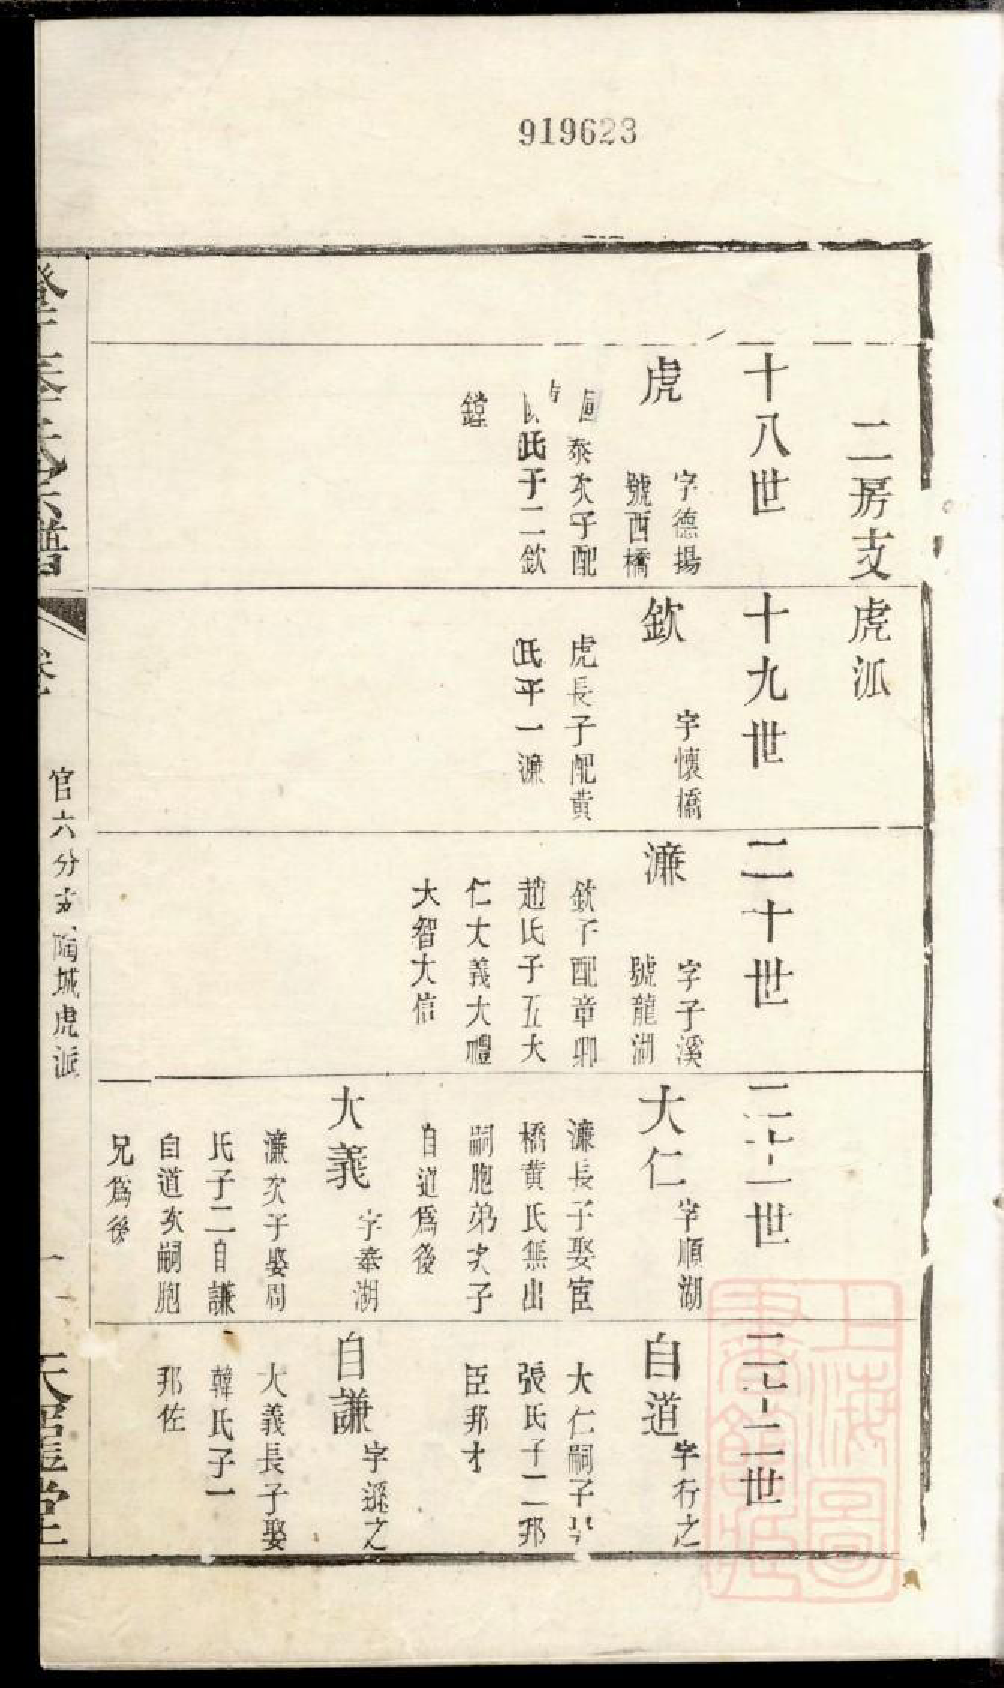 919623
二房支虎派
十八世
虎
字德揚
號西橋
泰次子配
氏子二欽
鐣
十九世
欽
字懷橋
虎長子配黃
氏子一濂
二十世
濂
字子溪
號龍湖
欽子配章卿
趙氏子五大
仁大義大禮
大智大信
二十一世
大仁
字順湖
濂長子娶宦
橋黃氏無出
嗣胞弟次子
自道爲後
大義
字奉湖
濂次子娶周
氏子二自謙
自道次嗣胞
兄爲後
二十二世
自道
字行之
大仁嗣子
張氏子二邦
臣邦才
自謙
字遜之
大義長子娶
韓氏子一
邦佐
氏宗譜
官六分支陶城虎派
一
上海圖書館藏